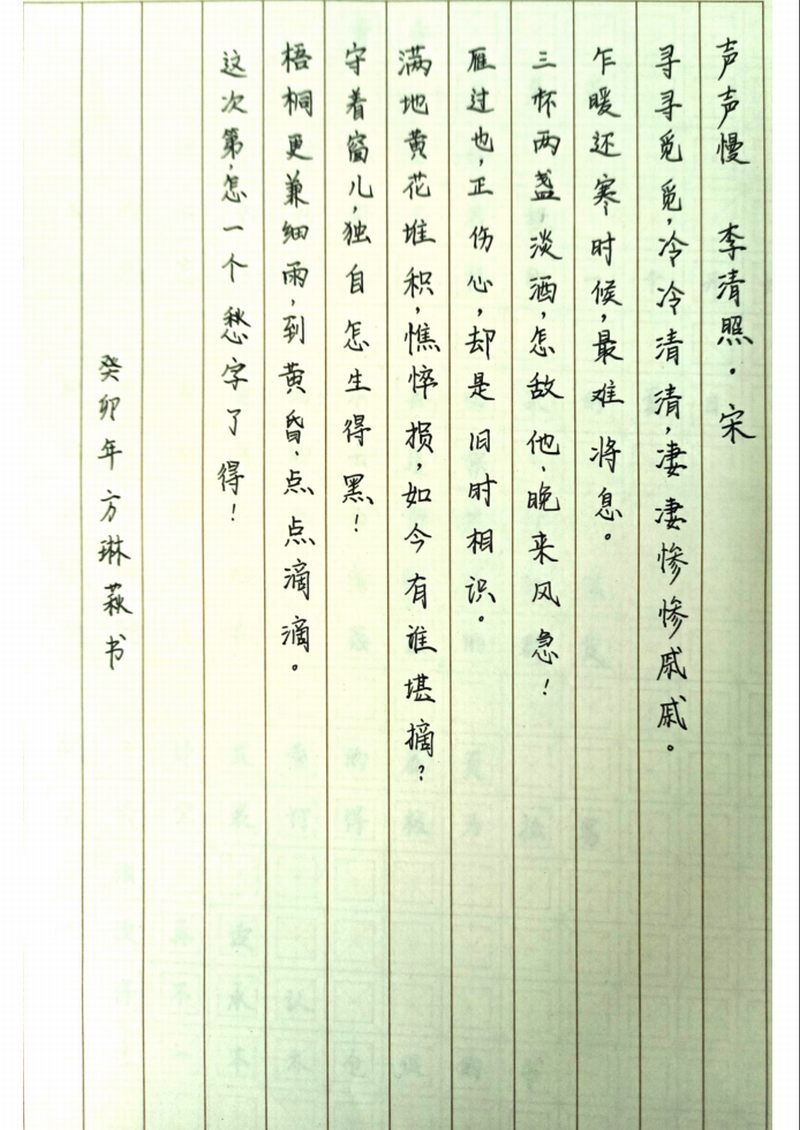 声声慢 李清照·宋
寻寻觅觅,冷冷清清,凄凄惨惨戚戚。
乍暖还寒时候,最难将息。
三杯两盏,淡酒,怎敌他、晚来风急!
雁过也,正伤心,却是旧时相识。
满地黄花堆积,憔悴损,如今有谁堪摘?
守着窗儿,独自怎生得黑!
梧桐更兼细雨,到黄昏、点点滴滴。
这次第,怎一个愁字了得!
癸卯年方琳萩书